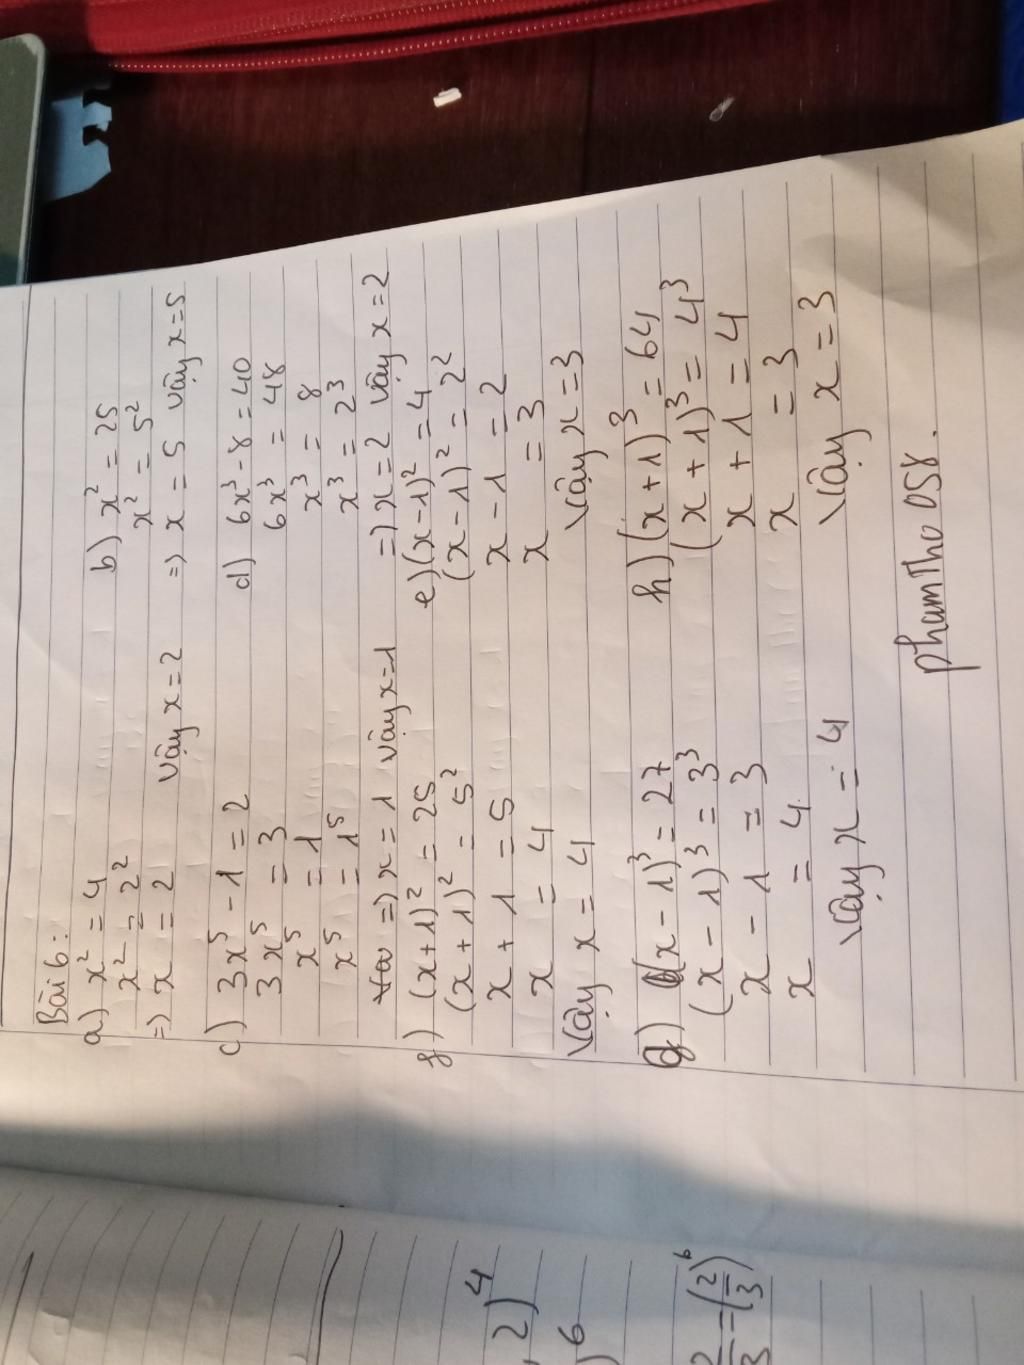 Bài 6:
a) x² = 4
x² = 2²
=) x = 2 Vậy x = 2
b) x² = 25
x² = 5²
=) x = 5 Vậy x = 5
c) 3x⁵ - 1 = 2
3x⁵ = 3
x⁵ = 1
x⁵ = 1⁵
=) x = 1 Vậy x = 1
d) 6x³ - 8 = 40
6x³ = 48
x³ = 8
x³ = 2³
=) x = 2 Vậy x = 2
f) (x+1)² = 25
(x+1)² = 5²
x + 1 = 5
x = 4
Vậy x = 4
e) (x-1)² = 4
(x-1)² = 2²
x - 1 = 2
x = 3
Vậy x = 3
g) (x-1)³ = 27
(x-1)³ = 3³
x - 1 = 3
x = 4
Vậy x = 4
h) (x+1)³ = 64
(x+1)³ = 4³
x + 1 = 4
x = 3
Vậy x = 3
phamTho 058.
2)⁴
)6
=(2/3)⁶